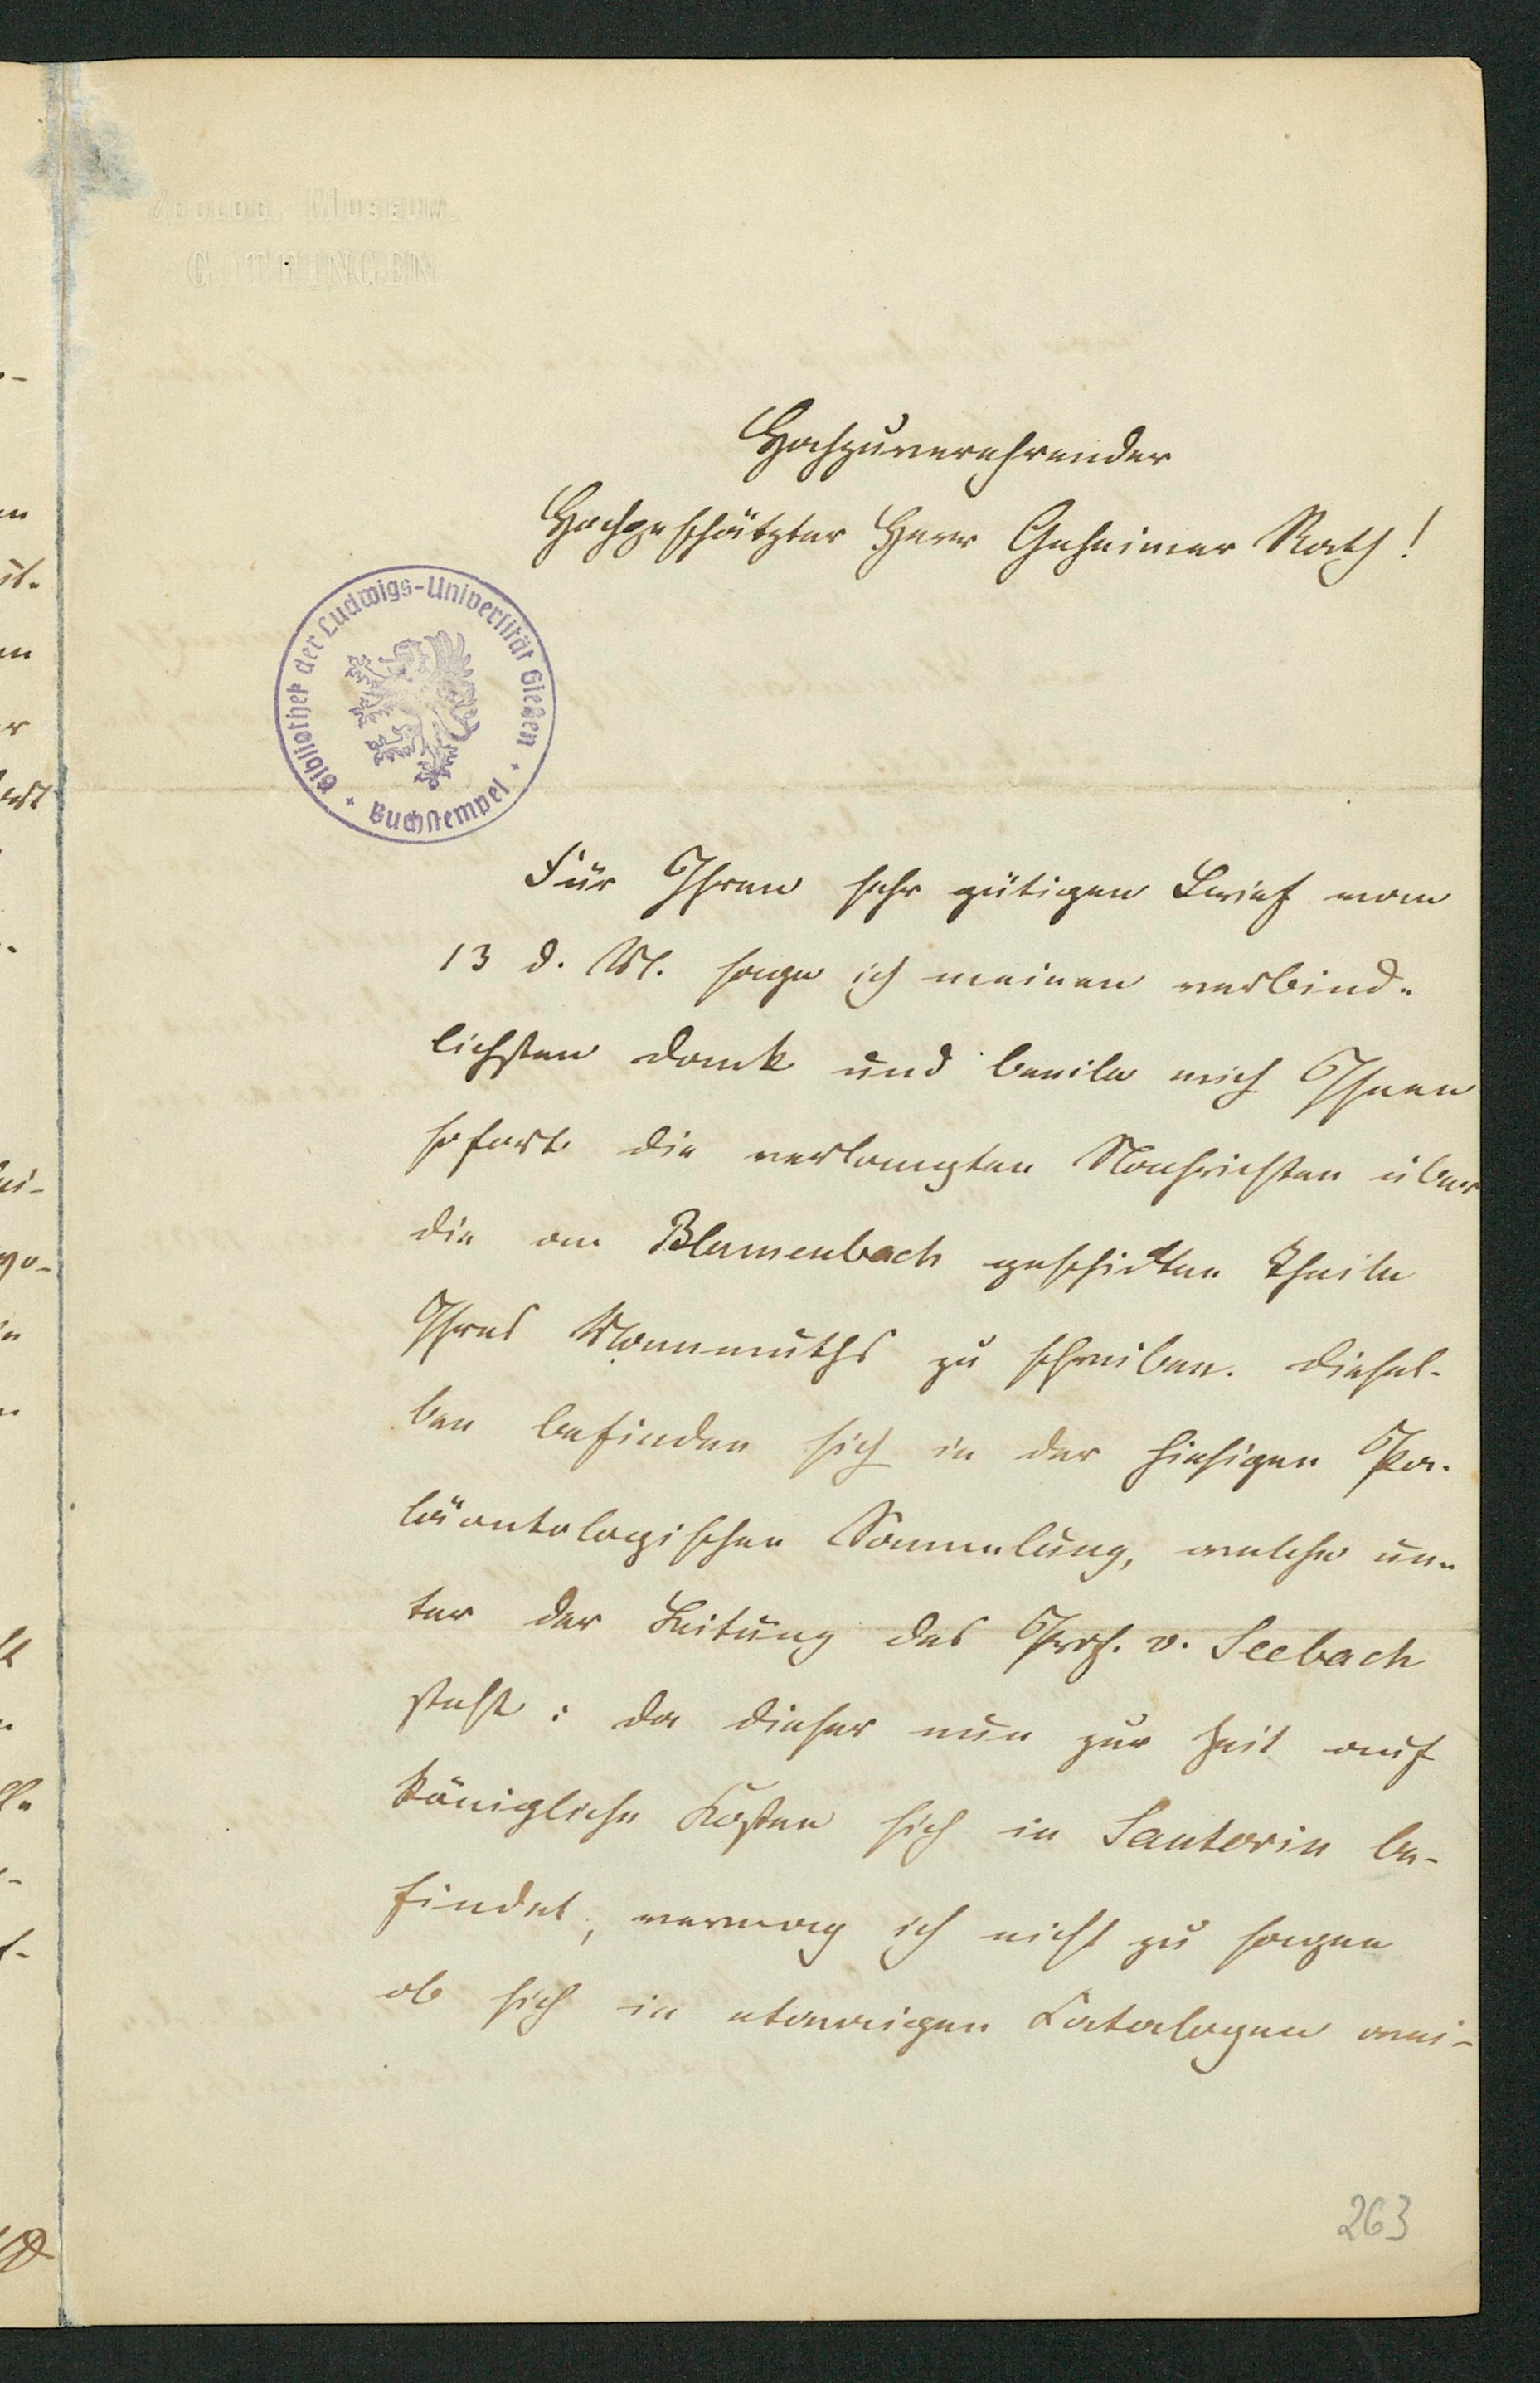 Zoolog. Museum.
GÖTTINGEN
Hochzuverehrender
Hochgeschätzter Herr Geheimer Rath!
Bibliothek der Ludwigs-Universität Gießen
Buchstempel
Für Ihren sehr gütigen Brief vom
13 d. M. sage ich meinen verbind-
lichsten Dank und beeile mich Ihnen
sofort die verlangten Nachrichten über
die an Blumenbach geschickten Theile
Ihres Mammuths zu schreiben. Diesel-
ben befinden sich in der hiesigen Pa-
läontologischen Sammlung, welche un-
ter der Leitung des Prof. v. Seebach
steht: da dieser nun zur Zeit auf
königliche Kosten sich in Santorin be-
findet, vermag ich nicht zu sagen
ob sich in etwaigen Katalogen
263